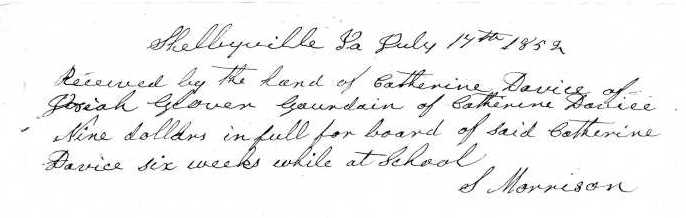 Shelbyville Ia July 14th 1852
Received by the hand of Catherine Davice of
Josiah Glover Gaurdain of Catherine Davice
Nine dolldrs in full for board of said Catherine
Davice six weeks while at School
S Morrison